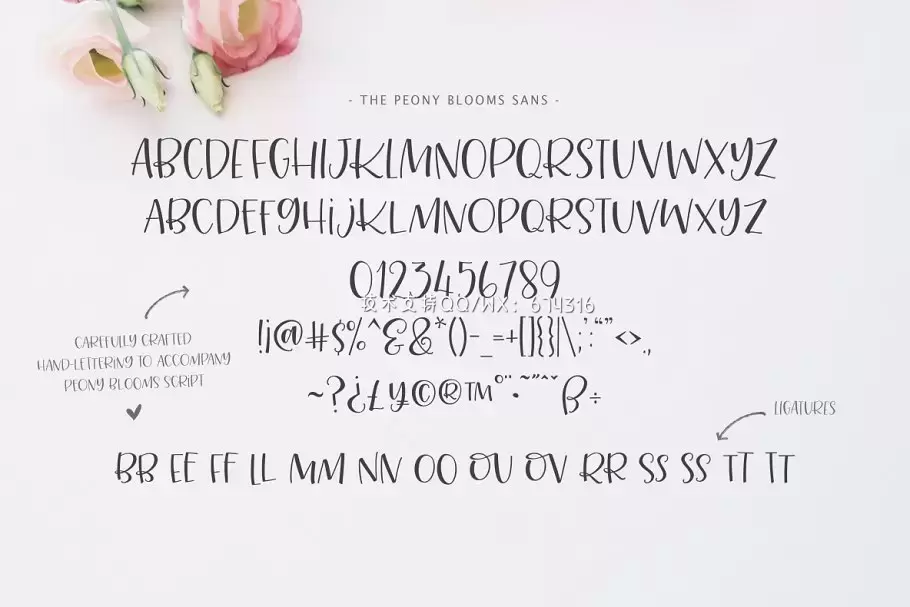 - THE PEONY BLOOMS SANS -
ABCDEFGHIJKLMNOPQRSTUVWXYZ
ABCDEFgHijKLMNOPQRSTUVWXYZ
0123456789
技术支持QQ/WX: 674316
!¡@#$%^&&*()-_=+[]{}|\;:'“”<>.,
CAREFULLY CRAFTED
HAND-LETTERING TO ACCOMPANY
PEONY BLOOMS SCRIPT
~?¿£¥©®™°¨·˜”ˆˇβ÷
LIGATURES
BB EE FF LL MM NN OO OU OV RR SS SS TT TT